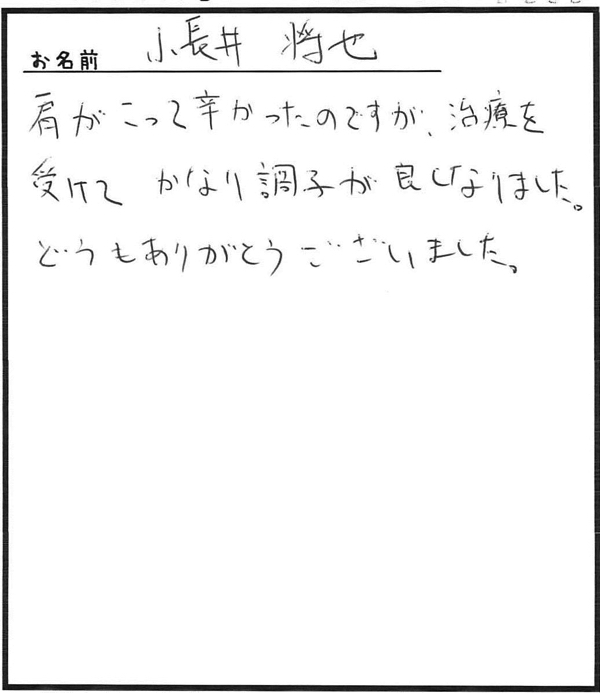 お名前 小長井 将也
肩がこって辛かったのですが、治療を
受けて かなり調子が良くなりました。
どうもありがとうございました。